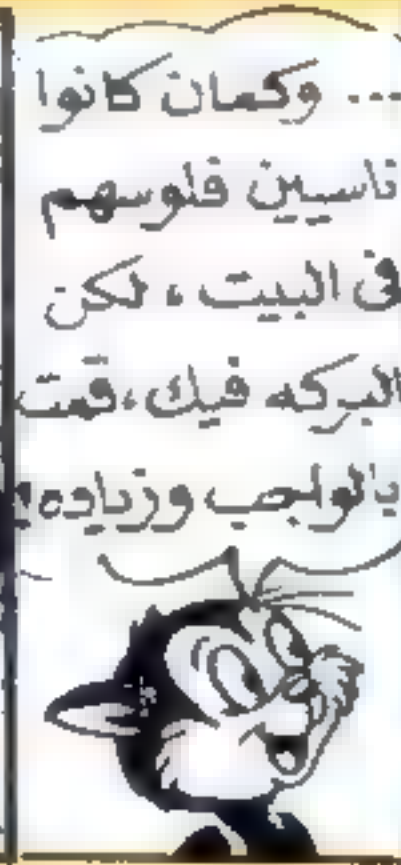 ... وكمان كانوا
ناسيين فلوسهم
فى البيت ، لكن
البركه فيك ، قمت
بالواجب وزياده